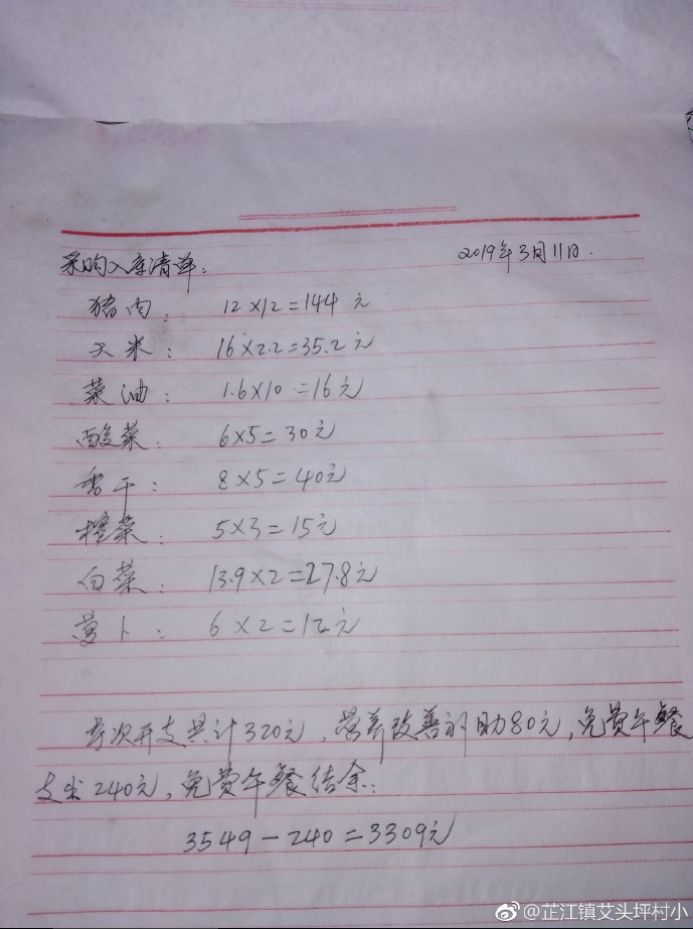 采购入库清单：
2019年3月11日.
猪肉： 12×12=144元
大米： 16×2.2=35.2元
菜油： 1.6×10=16元
酸菜： 6×5=30元
香干： 8×5=40元
榨菜： 5×3=15元
白菜： 13.9×2=27.8元
萝卜： 6×2=12元
每次开支共计320元，营养改善补助80元，免费午餐
支出240元，免费午餐结余：
3549-240=3309元
@芷江镇艾头坪村小